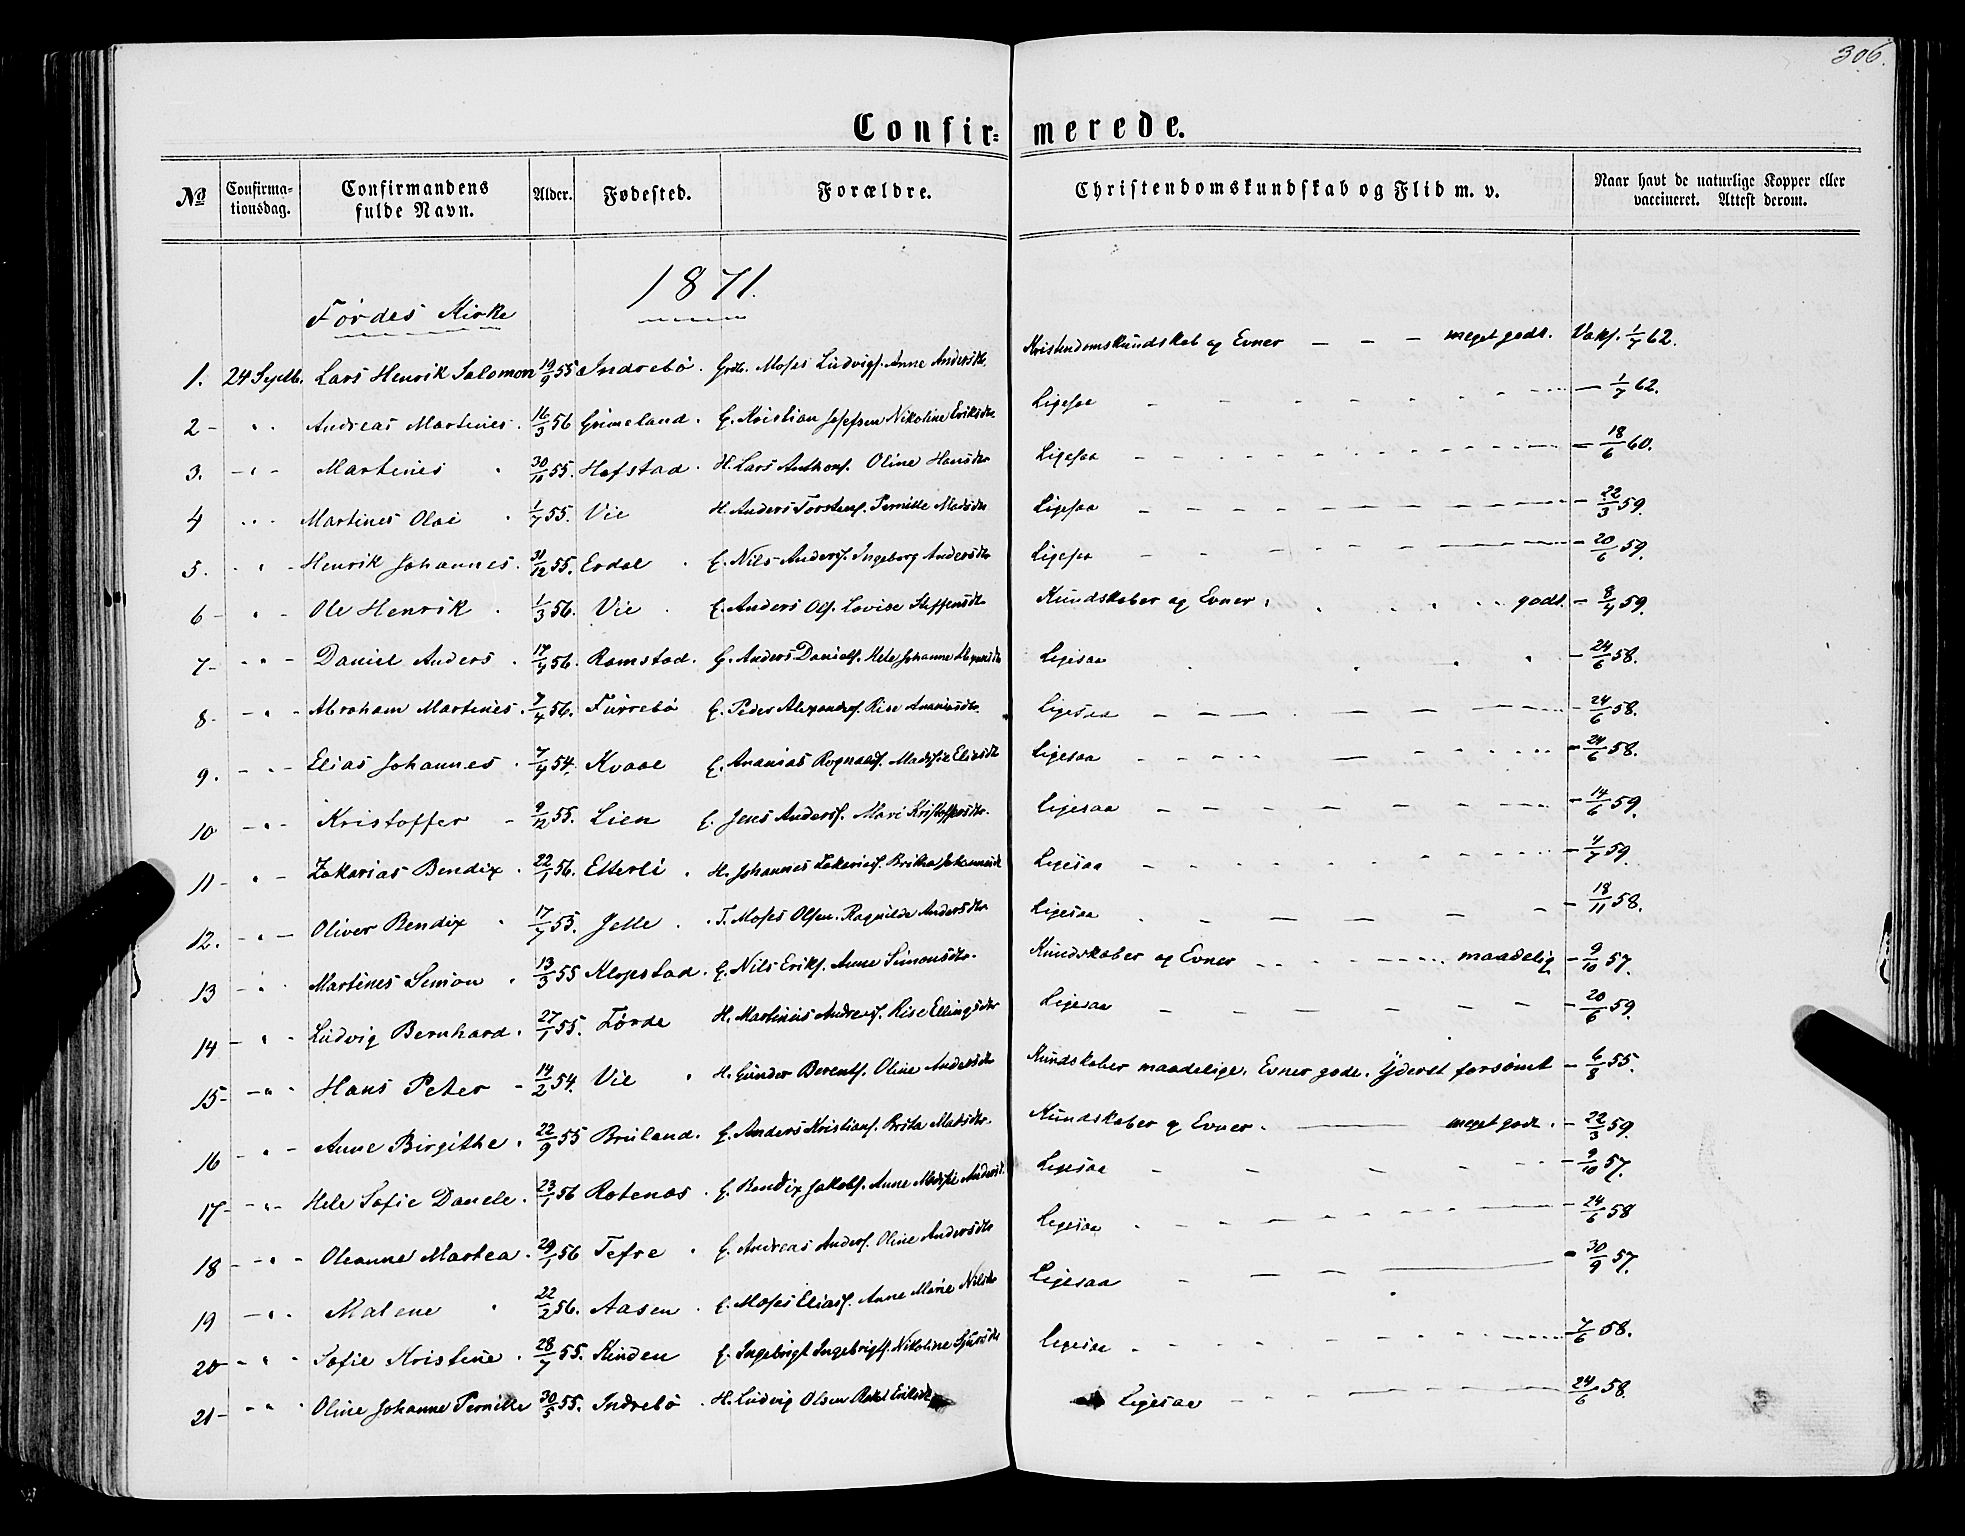 306.
Confir= merede.
No Confirma-tionsdag. Confirmandens fulde Navn. Alder. Fødested. Forældre. Christendomskundskab og Flid m. v. Naar havt de naturlige Kopper eller vaccineret. Attest derom.
1871.
Førdes Kirke
1. 24 Septb. Lars Henrik Salomon 19/9 55 Indrebö. Grdb. Moses Ludvigs. Anne Andersdtr. Kristendomskundskab og Evner — — — meget godt. Vaks. 1/7 62.
2 - " - Andreas Martinus. 16/3 56 Grimeland. G. Kristian Josefsen Nikoline Eriksdtr Ligesaa — 1/7 62.
3. - " - Martinus 30/10 55. Hafstad. H. Lars Anthons. Oline Hansdtr Ligesaa — 18/6 60.
4 - " - Martines Olai 1/7 55. Vie H. Anders Torstens. Pernille Madsdtr Ligesaa — 22/3 59.
5. - " - Henrik Johannes. 31/12 55. Erdal G. Nils Anders. Ingeborg Andersdtr Ligesaa — 20/6 59.
6 - " - Ole Henrik 1/3 56. Vie G. Anders Ols. Lovise Steffensdtr Kundskaber og Evner godt. — 8/4 59.
7 - " - Daniel Anders 17/4 56. Ramstad. G. Anders Daniels. Hele Johanne Ligesaa — 24/6 58.
8 - " - Abraham Martinus. 7/4 56. Furrebö G. Peder Alexanders. Lise Ananiasdtr. Ligesaa — 24/6 58.
9. - " - Elias Johannes 7/4 54. Kvaal G. Ananias Rognalds. Madssie Eliasdtr Ligesaa — 24/6 58.
10 - " - Kristoffer 9/12 55. Lien G. Jens Anders. Mari Kristoffersdtr. Ligesaa — 14/6 59.
11 - " - Zakarias Bendix. 22/1 56. Etterli. H. Johannes Zakarias. Britha Johannesdtr Ligesaa — 4/7 59.
12. - " - Oliver Bendix 17/7 55. Jelle. T. Moses Olsen. Ragnilde Andersdtr. Ligesaa — 18/11 58.
13 - " - Martines Simon 13/3 55 Klopstad. G. Nils Eriks. Anne Simonsdtr. Kundskaber og Evner maadelig — 9/10 57.
14 - " - Ludvig Bernhard. 27/1 55. Førde H. Martinus Andreas. Lise Ellingsdtr Ligesaa — 20/6 59.
15 - " - Hans Peter 14/2 54. Vie H. Gunder Berents. Oline Andersdtr Kundskaber maadelige. Evner gode. Yderst forsömt — 6/8 55.
16 - " - Anne Birgithe. 22/9 55 Bruland. G. Anders Kristians. Brita Madsdtr. Kundskaber og Evner. — meget godt. — 22/3 59.
17 - " - Hele Sofie Danele. 23/1 56 Rotenæs. G. Bendix Jakobs. Anne Madssie Andersd. Ligesaa — 9/10 57.
18 - " - Oleanne Martea. 29/1 56 Tefre G. Andreas Anders. Oline Andersdtr Ligesaa — 24/6 58
19 - " - Malene 22/2 56. Aasen. G. Moses Elias. Anne Marie Nilsdtr Ligesaa — 30/9 57.
20 - " - Sofie Kristine. 28/7 55. Kinden G. Ingebrigt Ingebrigts. Nikoline Sjursdtr Ligesaa — 7/6 58.
21 - " - Oline Johanne Pernille 30/5 55. Indrebö. H. Ludvig Olsen Rakel Eriksdtr Ligesaa — 24/6 58.